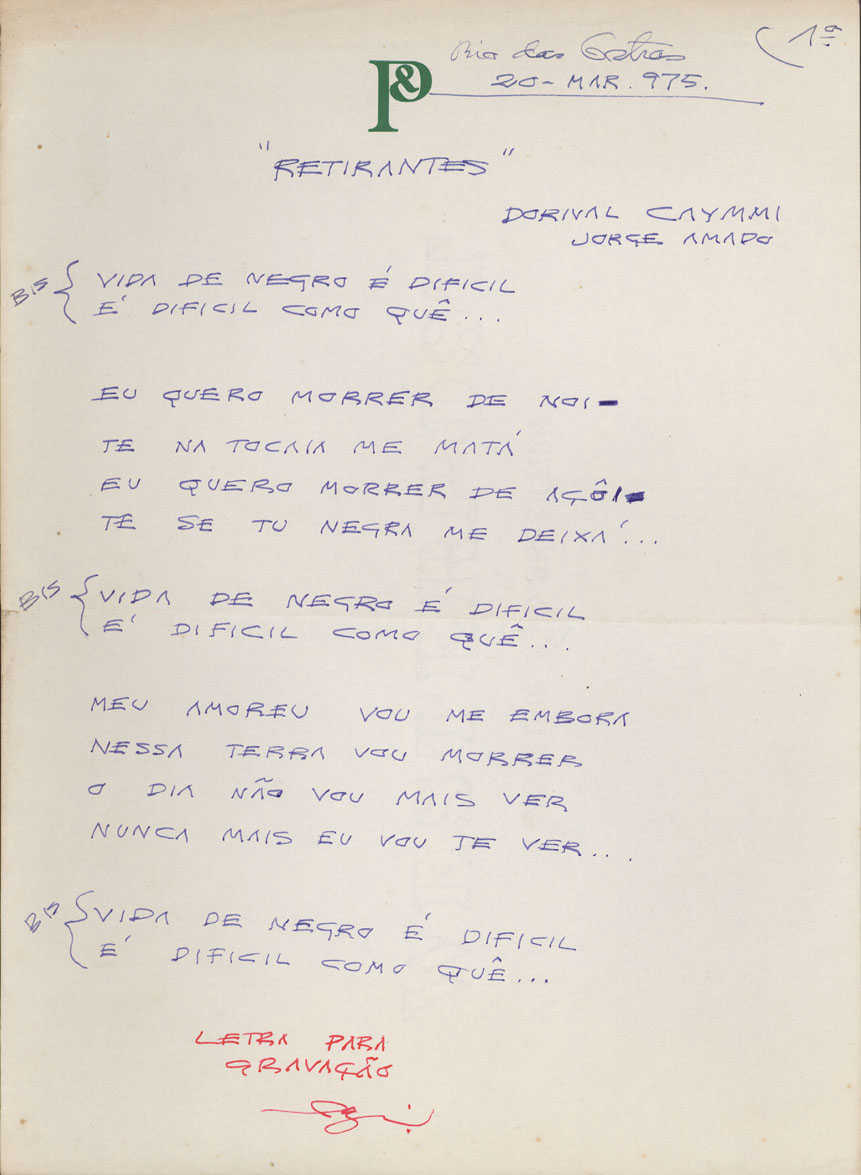 1ª
Rio das Ostras
20-MAR.975.
P&
"RETIRANTES"
DORIVAL CAYMMI
JORGE AMADO
BIS { VIDA DE NEGRO É DIFICIL
É DIFICIL COMO QUÊ...
EU QUERO MORRER DE NOI-
TE NA TOCAIA ME MATÁ
EU QUERO MORRER DE AÇÔI-
TE SE TU NEGRA ME DEIXÁ...
BIS { VIDA DE NEGRO É DIFICIL
É DIFICIL COMO QUÊ...
MEU AMOR EU VOU ME EMBORA
NESSA TERRA VOU MORRER
O DIA NÃO VOU MAIS VER
NUNCA MAIS EU VOU TE VER...
BIS { VIDA DE NEGRO É DIFICIL
É DIFICIL COMO QUÊ...
LETRA PARA
GRAVAÇÃO